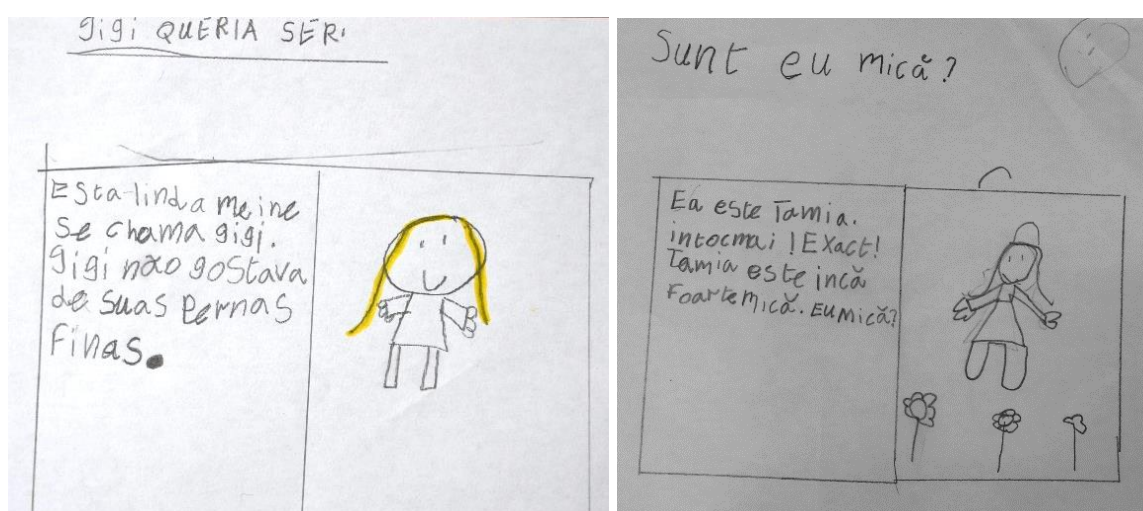 gigi QUERIA SER.
Esta linda meine
se chama gigi.
gigi não gostava
de suas pernas
finas.
Sunt eu mică?
Ea este Tamia.
intocmai ! Exact!
Tamia este incă
foarte mică. Eu mică?